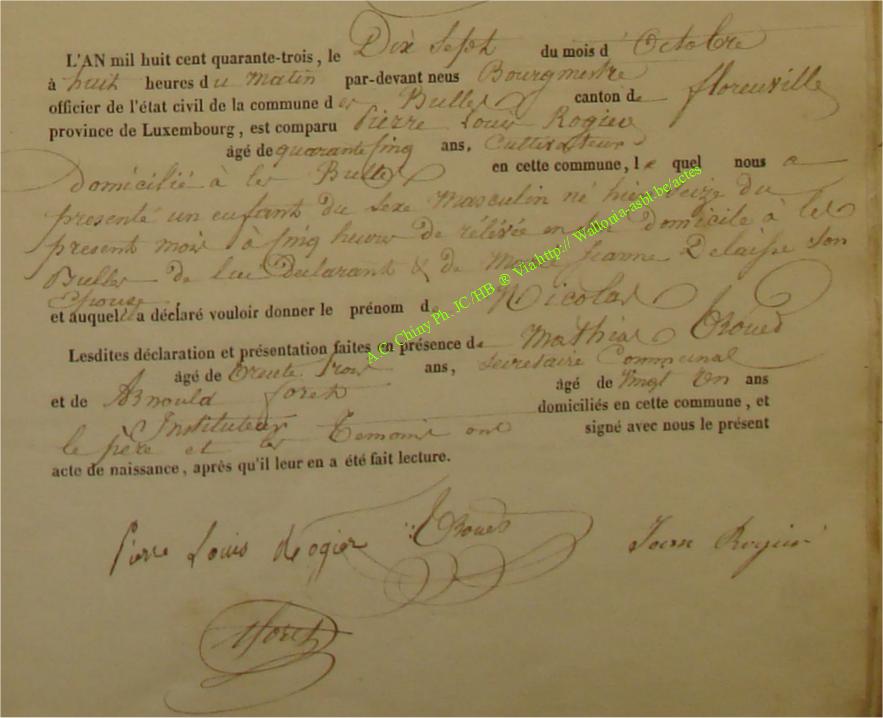 L'AN mil huit cent quarante-trois, le Dix Sept du mois d' Octobre
à huit heures du matin par-devant nous Bourgmestre
officier de l'état civil de la commune des Bulles canton de florenville
province de Luxembourg, est comparu Pierre Louis Rogier
âgé de quarante sinq ans, Cultivateur
domicilié à les Bulles en cette commune, le quel nous a
présenté un enfant du sexe Masculin né hier seize du
présent mois à sinq heures de rélévée en son domicile à les
Bulles de lui Déclarant & de Marie Jeanne Delaisse son
Epouse
et auquel il a déclaré vouloir donner le prénom de Nicolas
Lesdites déclaration et présentation faites en présence de Mathias
âgé de trente trois ans, secretaire Communal
et de Arnould foret âgé de vingt un ans
Instituteur domiciliés en cette commune, et
le père et les Temoins ont signé avec nous le présent
acte de naissance, après qu'il leur en a été fait lecture.
Pierre Louis Rogier Jean Rogier
foret
A.C. Chiny Ph. JC/HB ® Via http:// Wallonia-asbl.be/actes